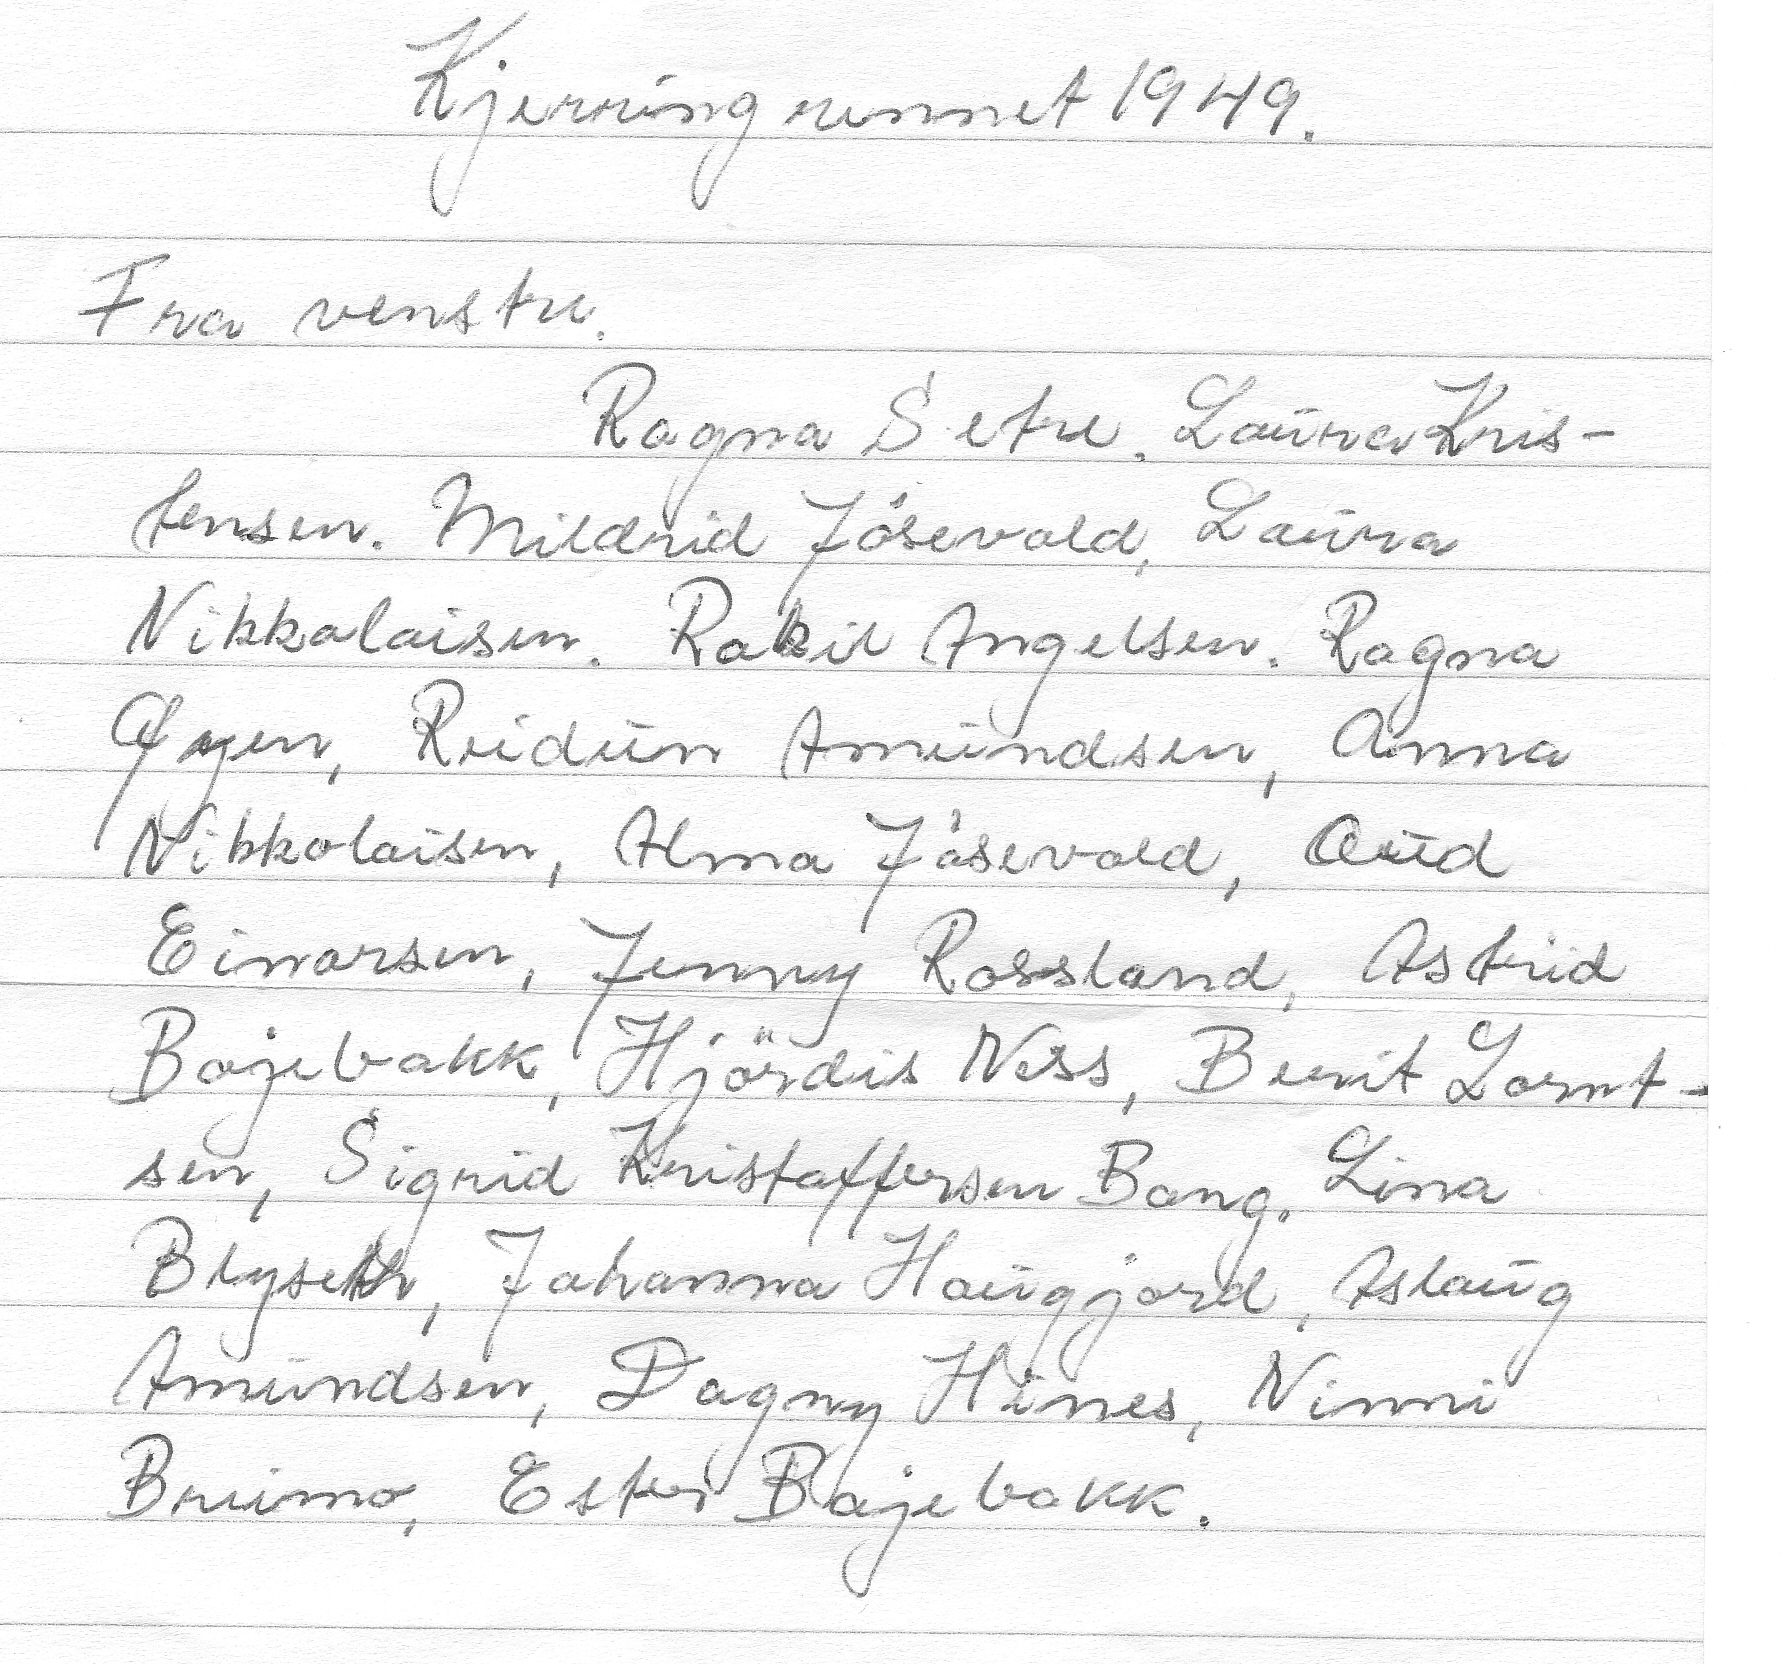 Kjerringrennet 1949.
Fra venstre.
Ragna Setre. Laura Kris-
tensen. Mildrid Jösevold, Laura
Nikkolaisen. Rakil Angelsen. Ragna
Reidun Amundsen, Anna
Nikkolaisen, Alma Jåsevold, Aud
Einarsen, Jenny Rossland, Astrid
Bojebakk, Hjördis Ness, Berit Lornt-
sen, Sigrid Kristoffersen Bang. Lina
Blyseth, Johanna Haugjord, Aslaug
Amundsen, Dagny Hines, Ninni
Brumo, Ester Bojebakk.